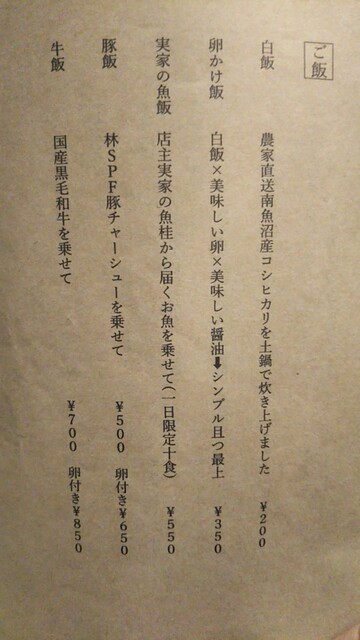 ご飯
白飯 農家直送南魚沼産コシヒカリを土鍋で炊き上げました ¥200
卵かけ飯 白飯×美味しい卵×美味しい醤油➡シンプル且つ最上 ¥350
実家の魚飯 店主実家の魚桂から届くお魚を乗せて(一日限定十食) ¥550
豚飯 林SPF豚チャーシューを乗せて ¥500 卵付き¥650
牛飯 国産黒毛和牛を乗せて ¥700 卵付き¥850